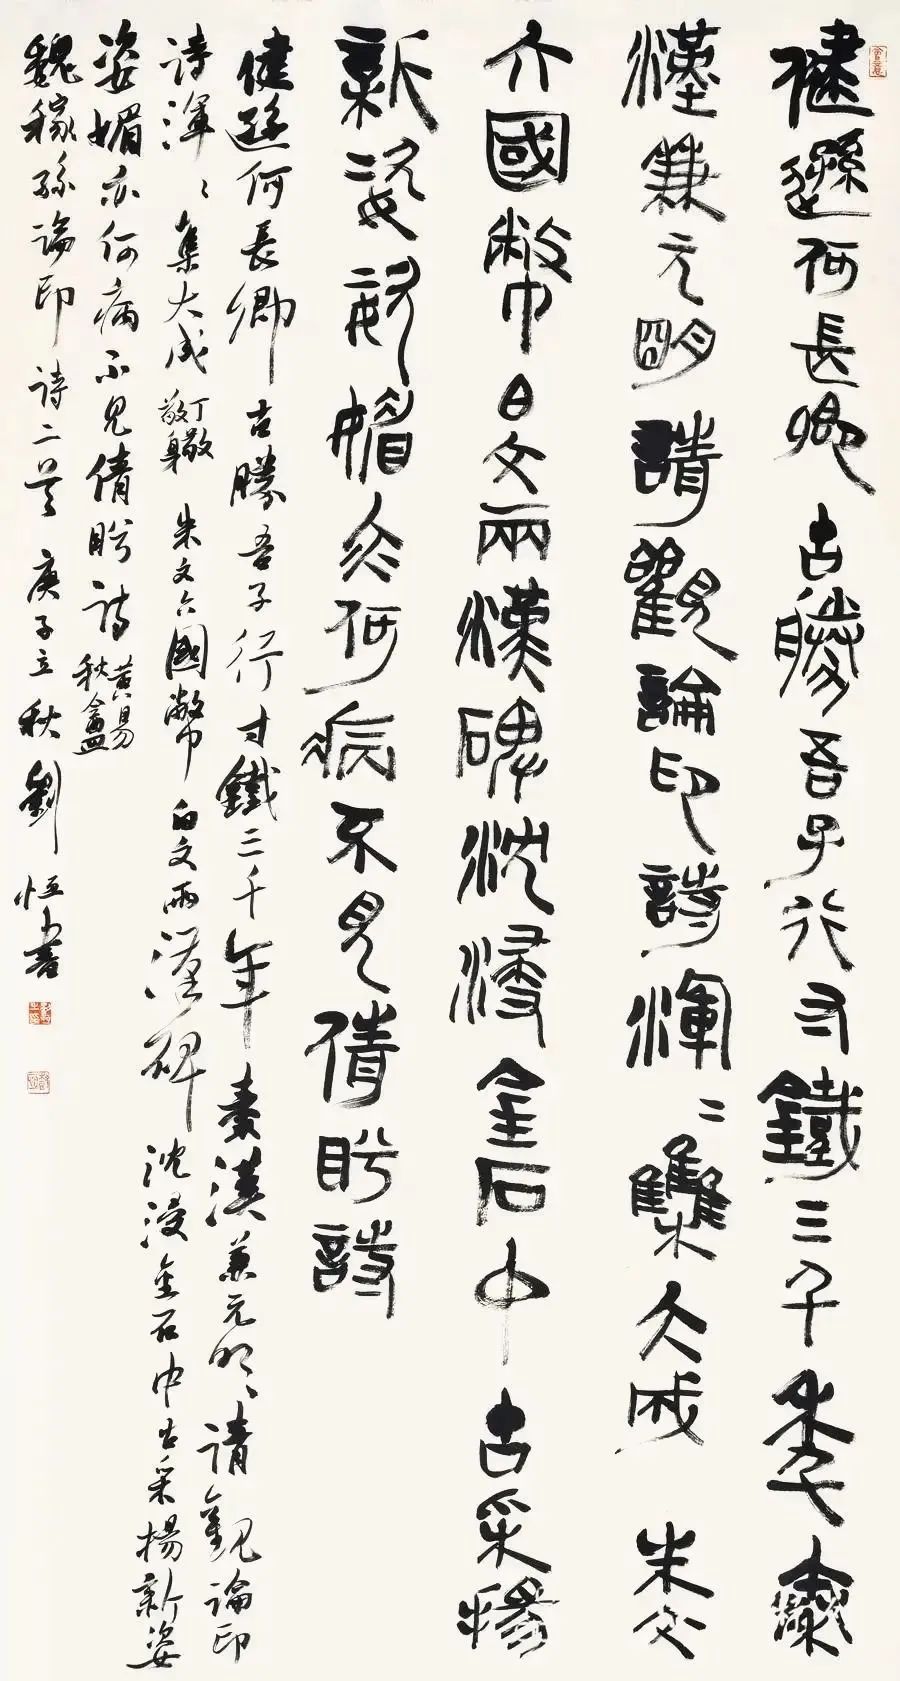 健逊何長卿古勝吾子行寸鐵三千年秦
漢兼元明請觀論印詩渾〻集大成朱文
六國幣白文兩漢碑沈浸金石中古采揚
新姿姿媚亦何病不見倩盼詩
健逊何長卿古勝吾子行寸鐵三千年秦漢兼元明〻請觀論印
詩渾〻集大成丁敬敬身朱文六國幣白文兩漢碑沈浸金石中古采揚新姿
姿媚亦何病不見倩盼詩黄易秋盦
魏稼孫論印詩二首庚子立秋劉恒書